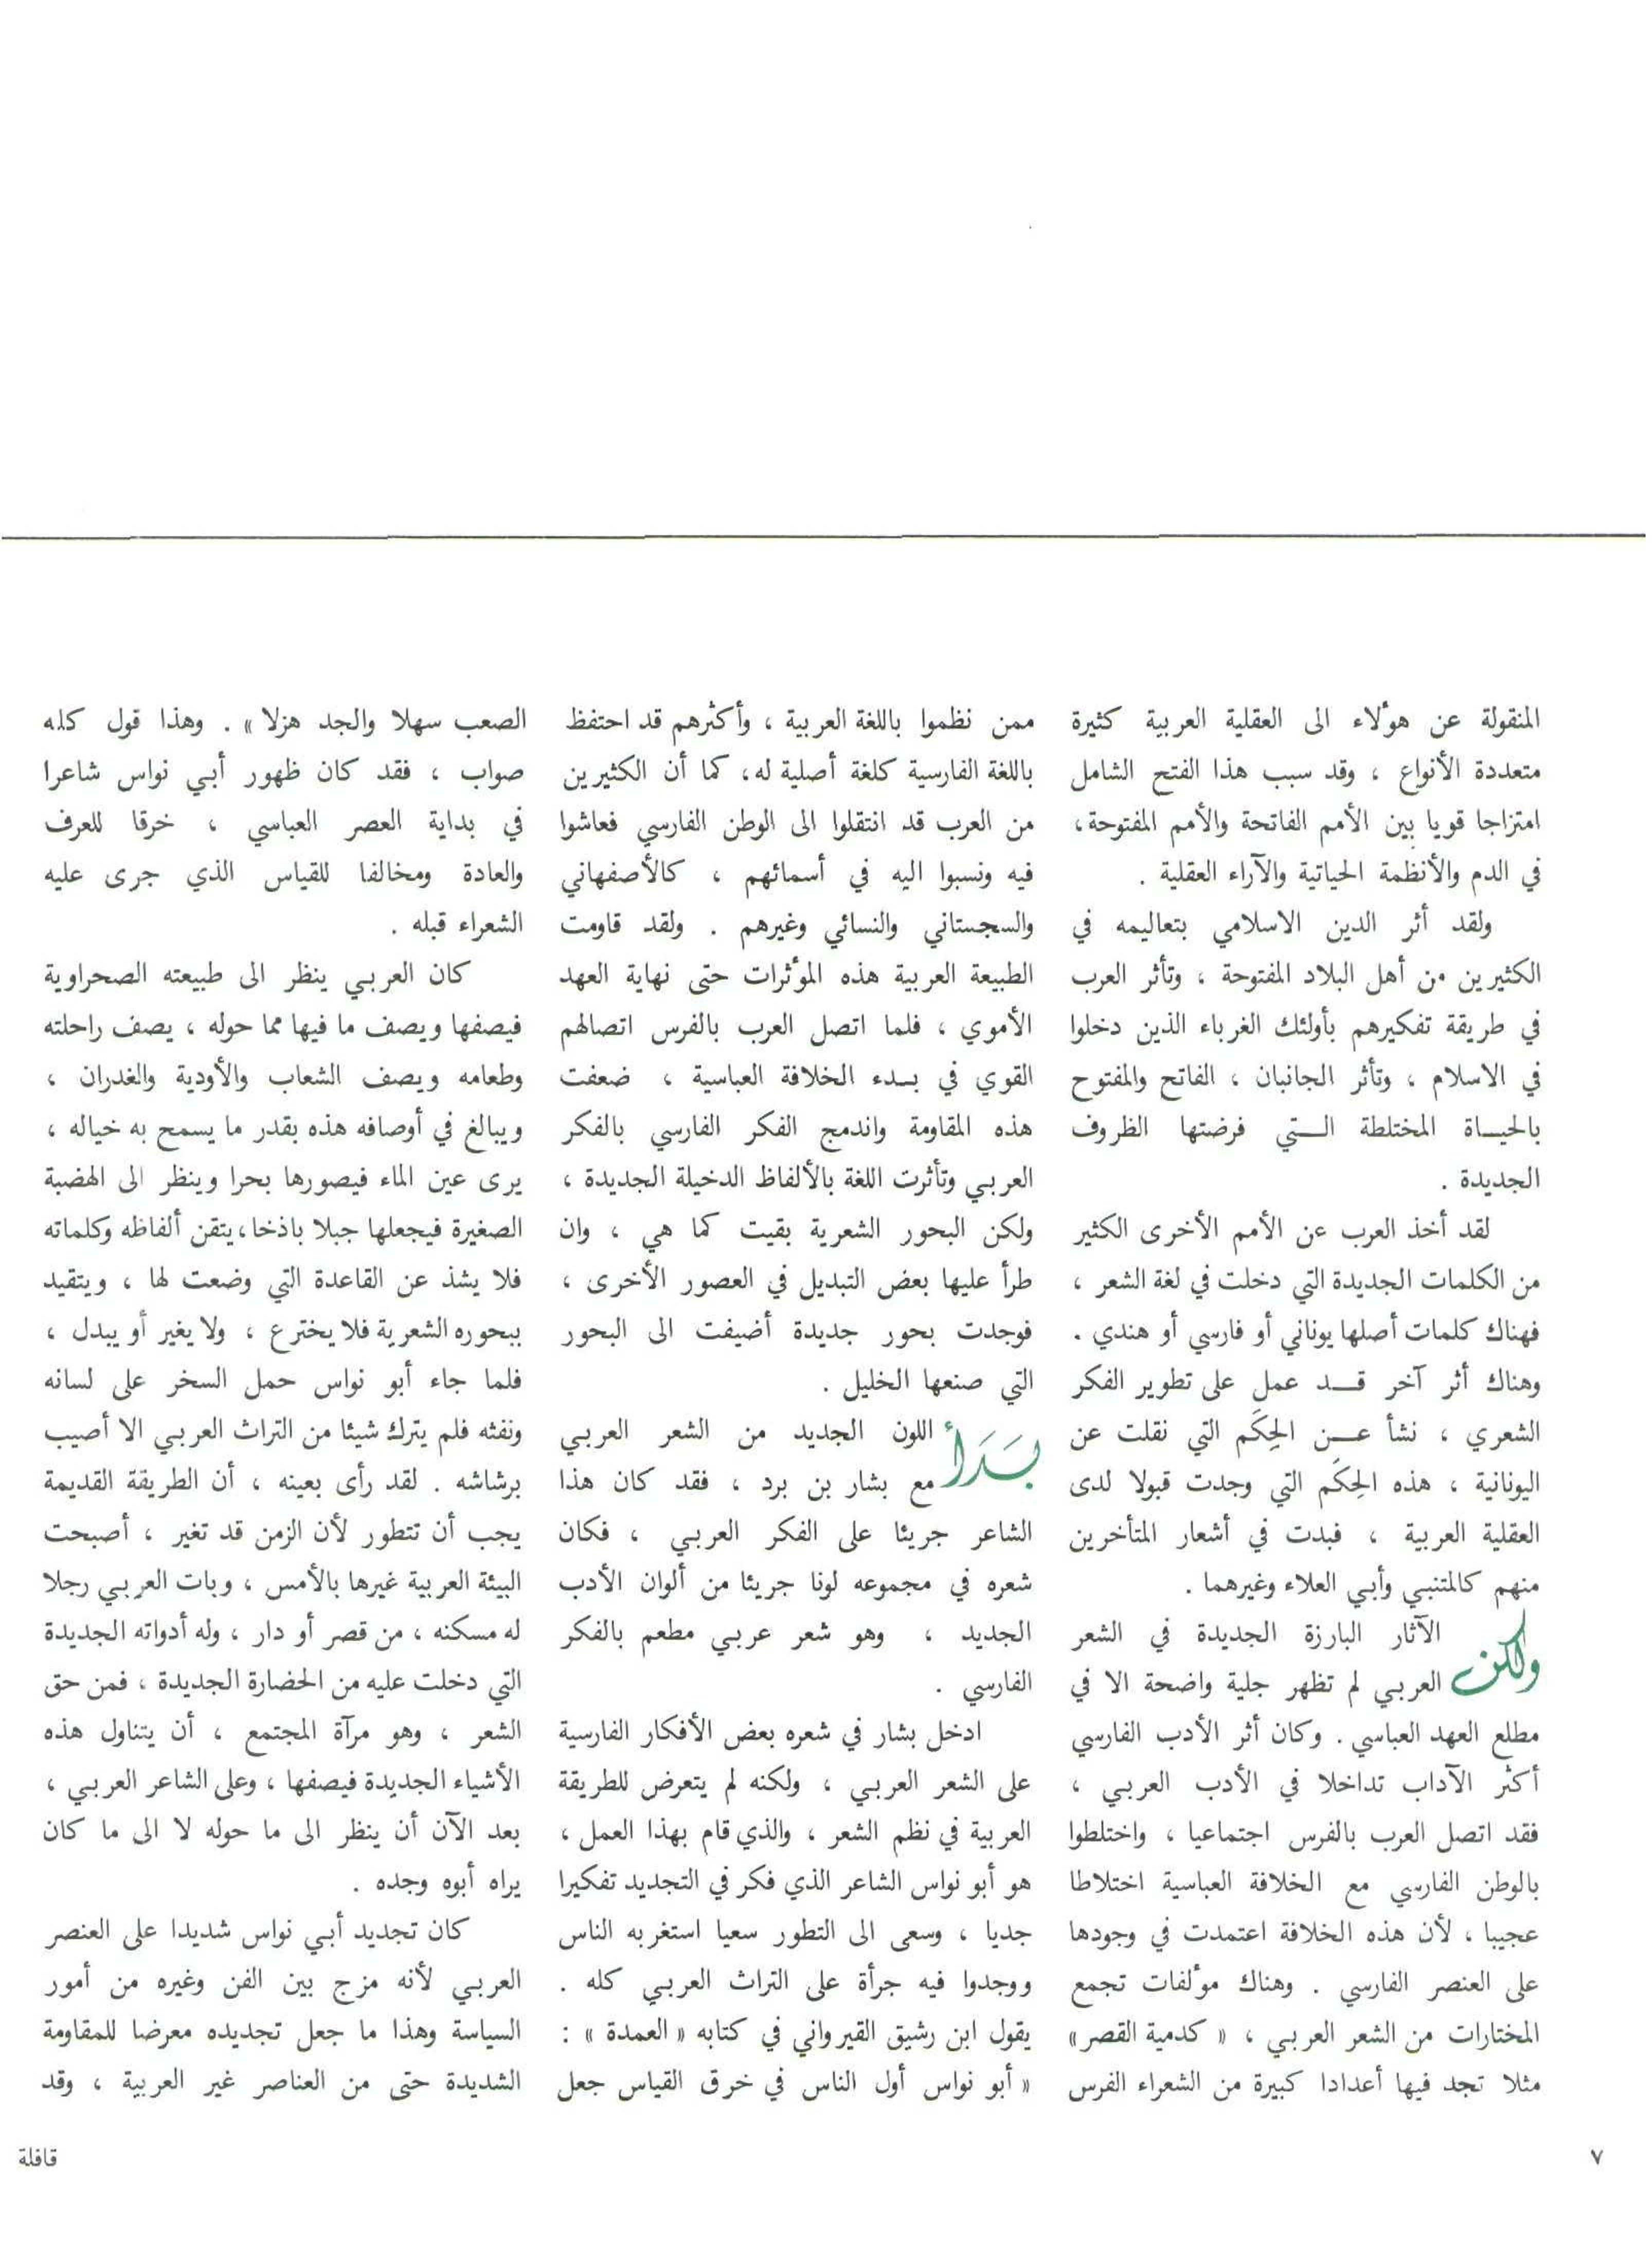 المنقولة عن هؤلاء الى العقلية العربية كثيرة
متعددة الأنواع ، وقد سبب هذا الفتح الشامل
امتزاجا قويا بين الأمم الفاتحة والأمم المفتوحة ،
في الدم والأنظمة الحياتية والآراء العقلية .
ولقد أثر الدين الاسلامي بتعاليمه في
الكثيرين من أهل البلاد المفتوحة ، وتأثر العرب
في طريقة تفكيرهم بأولئك الغرباء الذين دخلوا
في الاسلام ، وتأثر الجانبان ، الفاتح والمفتوح
بالحيــاة المختلطة الــتي فرضتها الظروف
الجديدة .
لقد أخذ العرب عن الأمم الأخرى الكثير
من الكلمات الجديدة التي دخلت في لغة الشعر ،
فهناك كلمات أصلها يوناني أو فارسي أو هندي .
وهناك أثر آخر قــد عمل على تطوير الفكر
الشعري ، نشأ عــن الحِكَم التي نقلت عن
اليونانية ، هذه الحِكَم التي وجدت قبولا لدى
العقلية العربية ، فبدت في أشعار المتأخرين
منهم كالمتنبي وأبي العلاء وغيرهما .
ولكن الآثار البارزة الجديدة في الشعر
العربي لم تظهر جلية واضحة الا في
مطلع العهد العباسي . وكان أثر الأدب الفارسي
أكثر الآداب تداخلا في الأدب العربي ،
فقد اتصل العرب بالفرس اجتماعيا ، واختلطوا
بالوطن الفارسي مع الخلافة العباسية اختلاطا
عجيبا ، لأن هذه الخلافة اعتمدت في وجودها
على العنصر الفارسي . وهناك مؤلفات تجمع
المختارات من الشعر العربي ، « كدمية القصر »
مثلا تجد فيها أعدادا كبيرة من الشعراء الفرس
ممن نظموا باللغة العربية ، وأكثرهم قد احتفظ
باللغة الفارسية كلغة أصلية له ، كما أن الكثيرين
من العرب قد انتقلوا الى الوطن الفارسي فعاشوا
فيه ونسبوا اليه في أسمائهم ، كالأصفهاني
والسجستاني والنسائي وغيرهم . ولقد قاومت
الطبيعة العربية هذه المؤثرات حتى نهاية العهد
الأموي ، فلما اتصل العرب بالفرس اتصالهم
القوي في بــدء الخلافة العباسية ، ضعفت
هذه المقاومة واندمج الفكر الفارسي بالفكر
العربي وتأثرت اللغة بالألفاظ الدخيلة الجديدة ،
ولكن البحور الشعرية بقيت كما هي ، وان
طرأ عليها بعض التبديل في العصور الأخرى ،
فوجدت بحور جديدة أضيفت الى البحور
التي صنعها الخليل .
بَدَأ اللون الجديد من الشعر العربي
مع بشار بن برد ، فقد كان هذا
الشاعر جريئا على الفكر العربي ، فكان
شعره في مجموعه لونا جريئا من ألوان الأدب
الجديد ، وهو شعر عربي مطعم بالفكر
الفارسي .
ادخل بشار في شعره بعض الأفكار الفارسية
على الشعر العربي ، ولكنه لم يتعرض للطريقة
العربية في نظم الشعر ، والذي قام بهذا العمل ،
هو أبو نواس الشاعر الذي فكر في التجديد تفكيرا
جديا ، وسعى الى التطور سعيا استغربه الناس
ووجدوا فيه جرأة على التراث العربي كله .
يقول ابن رشيق القيرواني في كتابه « العمدة » :
« أبو نواس أول الناس في خرق القياس جعل
الصعب سهلا والجد هزلا » . وهذا قول كله
صواب ، فقد كان ظهور أبي نواس شاعرا
في بداية العصر العباسي ، خرقا للعرف
والعادة ومخالفا للقياس الذي جرى عليه
الشعراء قبله .
كان العربي ينظر الى طبيعته الصحراوية
فيصفها ويصف ما فيها مما حوله ، يصف راحلته
وطعامه ويصف الشعاب والأودية والغدران ،
ويبالغ في أوصافه هذه بقدر ما يسمح به خياله ،
يرى عين الماء فيصورها بحرا وينظر الى الهضبة
الصغيرة فيجعلها جبلا باذخا ، يتقن ألفاظه وكلماته
فلا يشذ عن القاعدة التي وضعت لها ، ويتقيد
ببحوره الشعرية فلا يخترع ، ولا يغير أو يبدل ،
فلما جاء أبو نواس حمل السخر على لسانه
ونفثه فلم يترك شيئا من التراث العربي الا أصيب
برشاشه . لقد رأى بعينه ، أن الطريقة القديمة
يجب أن تتطور لأن الزمن قد تغير ، أصبحت
البيئة العربية غيرها بالأمس ، وبات العربي رجلا
له مسكنه ، من قصر أو دار ، وله أدواته الجديدة
التي دخلت عليه من الحضارة الجديدة ، فمن حق
الشعر ، وهو مرآة المجتمع ، أن يتناول هذه
الأشياء الجديدة فيصفها ، وعلى الشاعر العربي ،
بعد الآن أن ينظر الى ما حوله لا الى ما كان
يراه أبوه وجده .
كان تجديد أبي نواس شديدا على العنصر
العربي لأنه مزج بين الفن وغيره من أمور
السياسة وهذا ما جعل تجديده معرضا للمقاومة
الشديدة حتى من العناصر غير العربية ، وقد
٧
قافلة